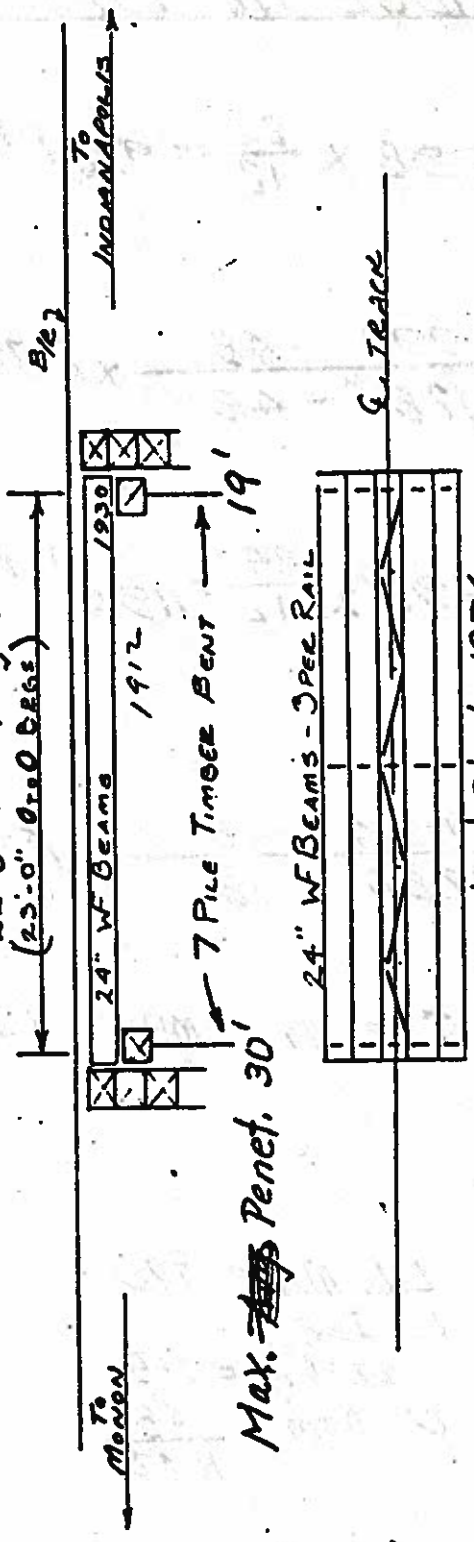 (23'-0" O TO O BRGS)
B/R
TO
MONON
TO
INDIANAPOLIS
24" WF BEAMS
1930
1912
7 PILE TIMBER BENT
19'
Max. Penet. 30'
24" WF BEAMS - 3 PER RAIL
TRACK